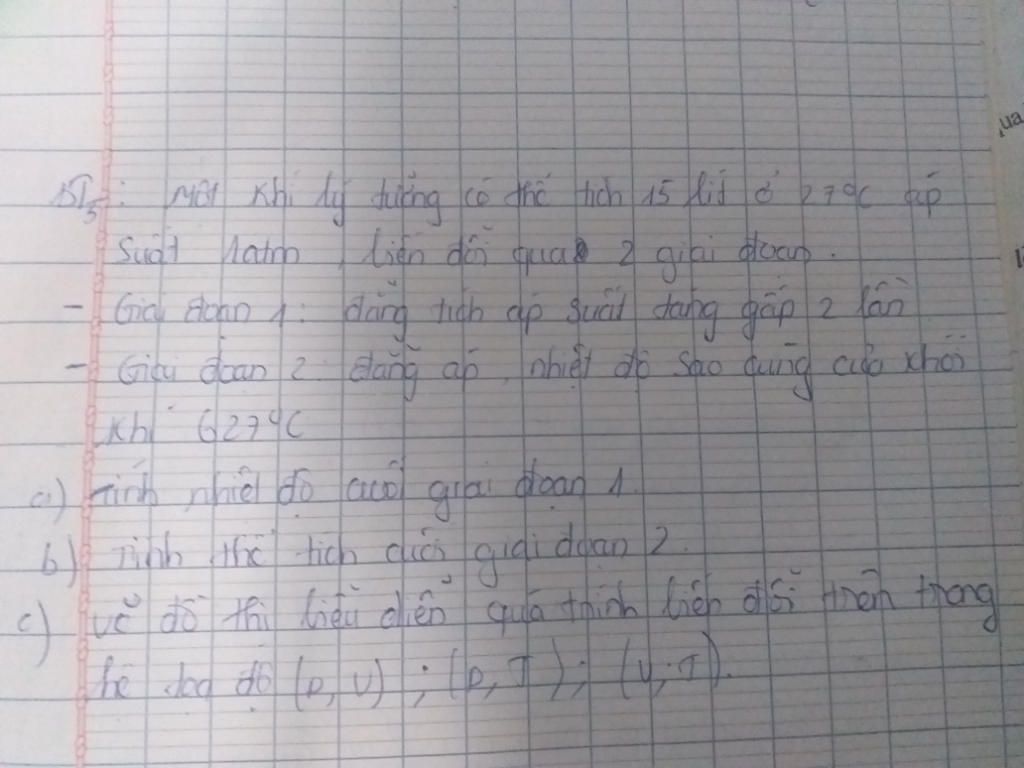 BT5: Một khí lý tưởng có thể tích 15 lít ở 27°C áp
suất 1atm, biến đổi qua 2 giai đoạn.
- Giai đoạn 1: đẳng tích áp suất tăng gấp 2 lần
- Giai đoạn 2: đẳng áp, nhiệt độ sao cùng của khối
khí 627°C
a) Tính nhiệt độ cuối giai đoạn 1.
b) Tính thể tích cuối giai đoạn 2.
c) vẽ đồ thị biểu diễn quá trình biến đổi trên trong
hệ tọa độ (p, V); (p, T); (V, T).
ua